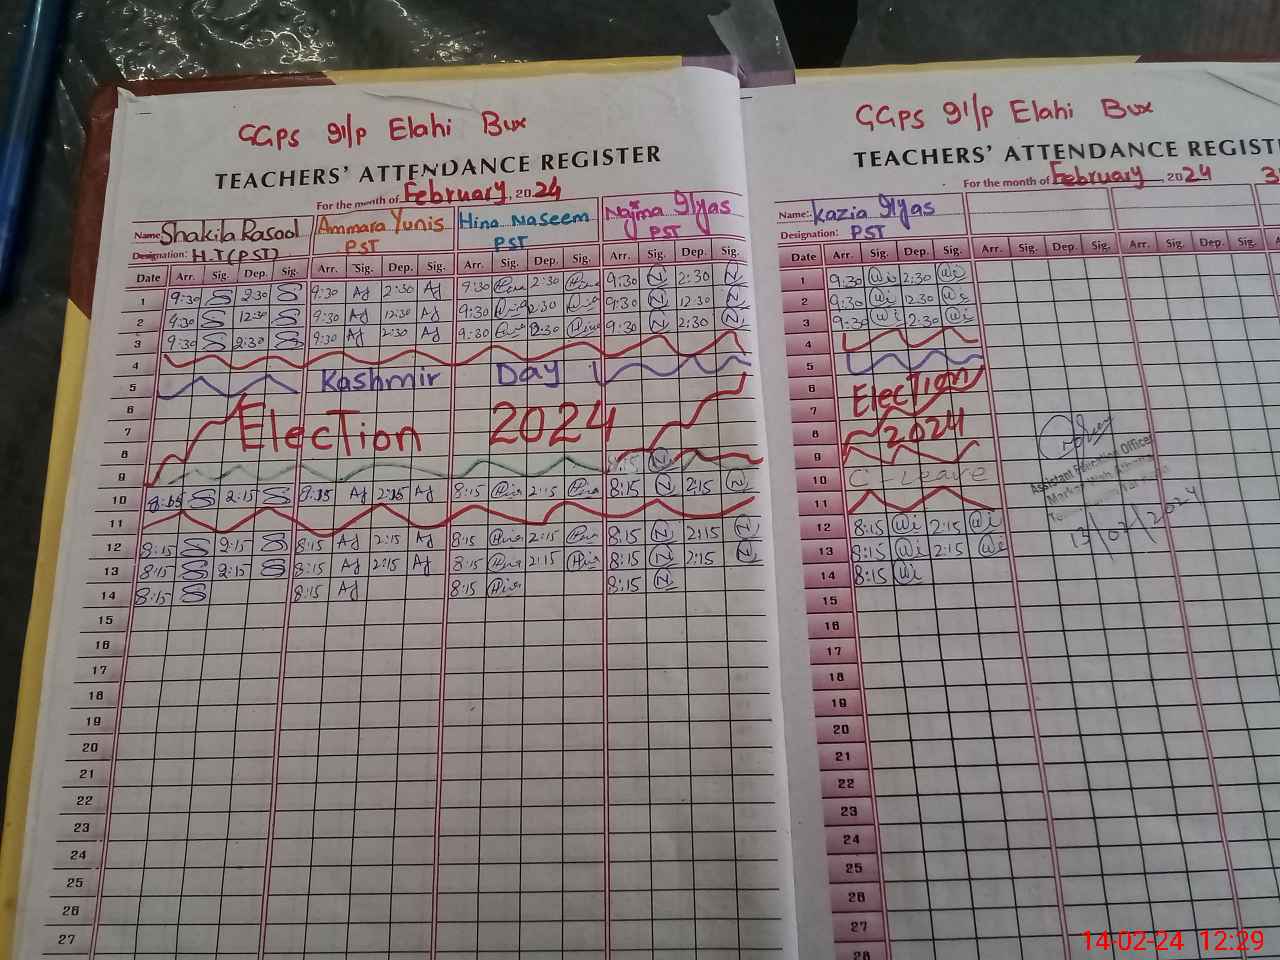 GGPS 91/P Elahi Bux
TEACHERS' ATTENDANCE REGISTER
For the month of February, 2024
Name: Shakila Rasool Ammara Yunis Hina Naseem Najma Ilyas
Designation: H.T(PST) PST PST PST
Date Arr. Sig. Dep. Sig. Arr. Sig. Dep. Sig. Arr. Sig. Dep. Sig. Arr. Sig. Dep. Sig.
1 9:30 2:30 9:30 AJ 2:30 AJ 9:30 2:30 9:30 N 2:30 N
2 9:30 12:30 9:30 AJ 12:30 AJ 9:30 9:30 N 12:30 N
3 9:30 2:30 9:30 AJ 2:30 AJ 9:30 9:30 N 2:30 N
4
5 Kashmir Day
6
7 Election 2024
8
9
10 2:15 AJ 2:15 AJ 8:15 2:15 8:15 N 2:15 N
11
12 8:15 2:15 8:15 AJ 2:15 AJ 8:15 2:15 8:15 N 2:15 N
13 8:15 2:15 8:15 AJ 2:15 AJ 8:15 2:15 8:15 N 2:15 N
14 8:15 8:15 AJ 8:15 8:15 N
15
16
17
18
19
20
21
22
23
24
25
26
27
GGPS 91/P Elahi Bux
TEACHERS' ATTENDANCE
For the month of February, 2024
Name: Kazia Ilyas
Designation: PST
Date Arr. Sig. Dep. Sig. Arr. Sig. Dep. Sig. Arr. Sig. Dep. Sig.
1 9:30 2:30
2 9:30 12:30
3 9:30 2:30
4
5
6 Election
7
8 2024
9
10 C-Leave
11
12 8:15 2:15
13 8:15 2:15
14 8:15
15
16
17
18
19
20
21
22
23
24
25
26
27
28
Assistant Education Officer
13/02/2024
14-02-24 12:29